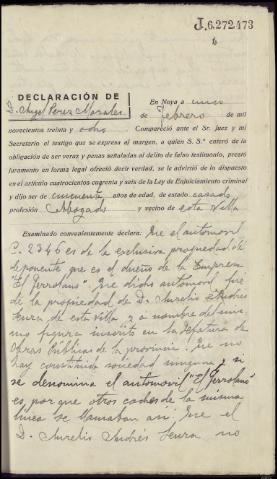 J.6.272.473
DECLARACIÓN DE
D. Angel Perez Morales
En Noya a cinco
de febrero de mil
novecientos treinta y ocho. Compareció ante el Sr. Juez y mi
Secretario el testigo que se expresa al margen, a quien S. Sª enteró de la
obligación de ser veraz y penas señaladas al delito de falso testimonio, prestó
juramento en forma legal ofreció decir verdad, se le advirtió de lo dispuesto
en el artículo cuatrocientos cuarenta y seis de la Ley de Enjuiciamiento criminal
y dijo ser de cincuenta años de edad, de estado casado
profesión Abogado y vecino de esta Villa
Examinado convenientemente declara: Que el automovil
C. 2346 es de la exclusiva propiedad de
deponente que es el dueño de la Empresa
"El Ferrolano". Que dicho automovil fue
de la propiedad de D. Aurelio Andrés
de esta Villa y a nombre del mis-
mo figura inscrito en la Jefatura de
Obras Públicas de la provincia. Que no
hay constituida sociedad ninguna y si
se denomina el automovil "El Ferrolano"
es, por que otros coches de la misma
linea se llamaban asi. Que el
D. Aurelio Andrés no